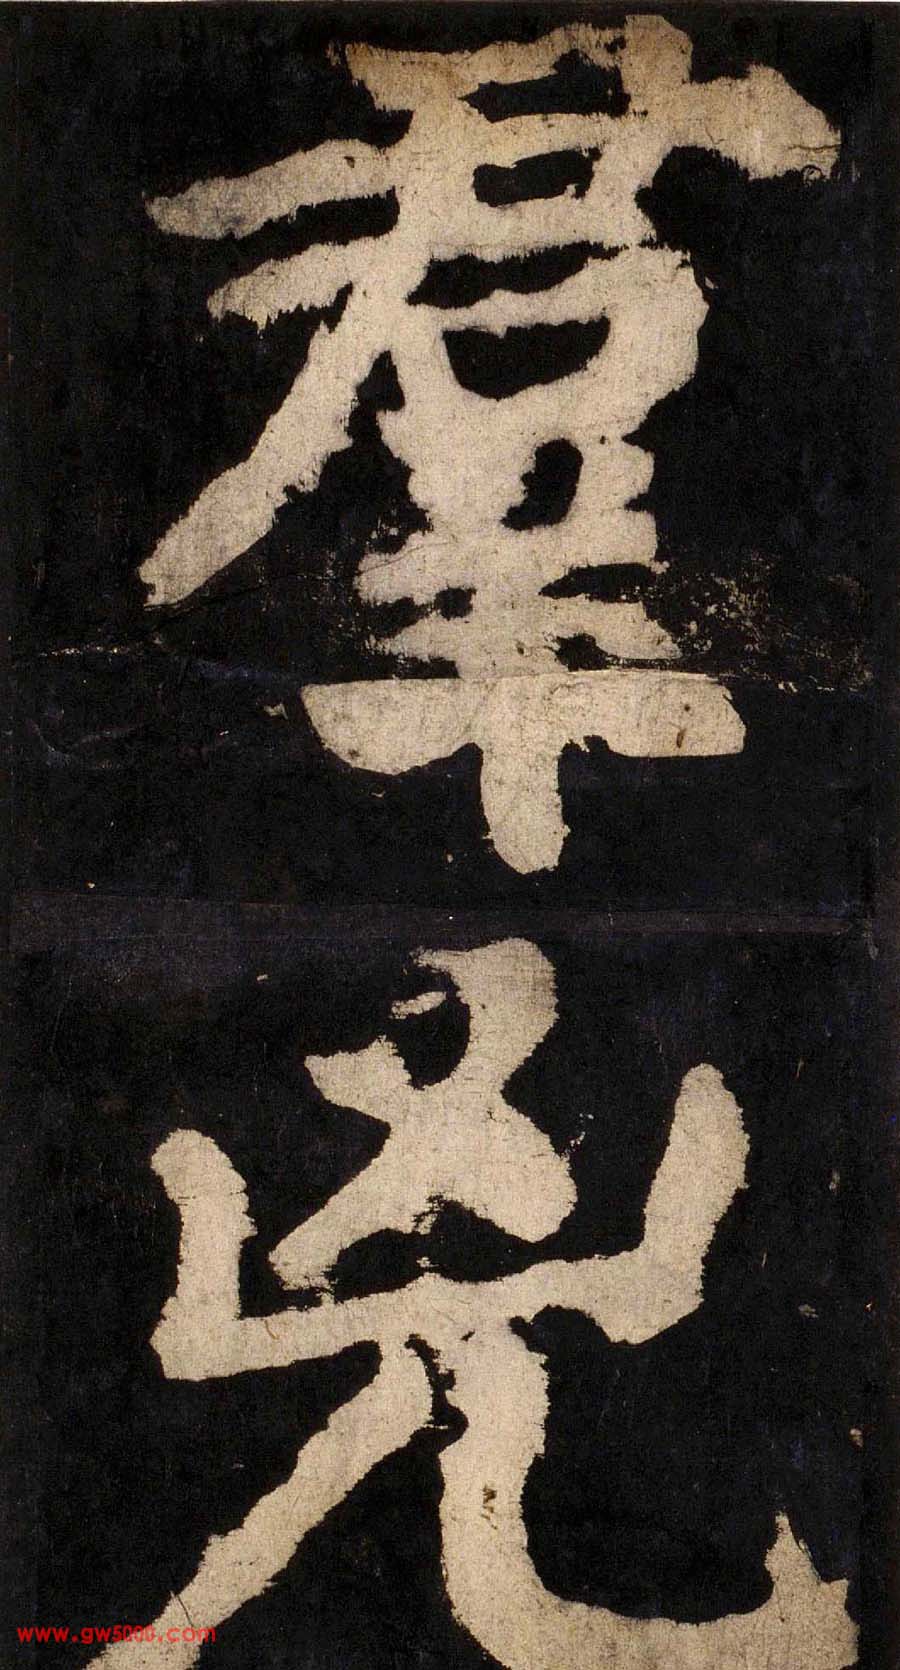 羣
兇
www.gw5000.com